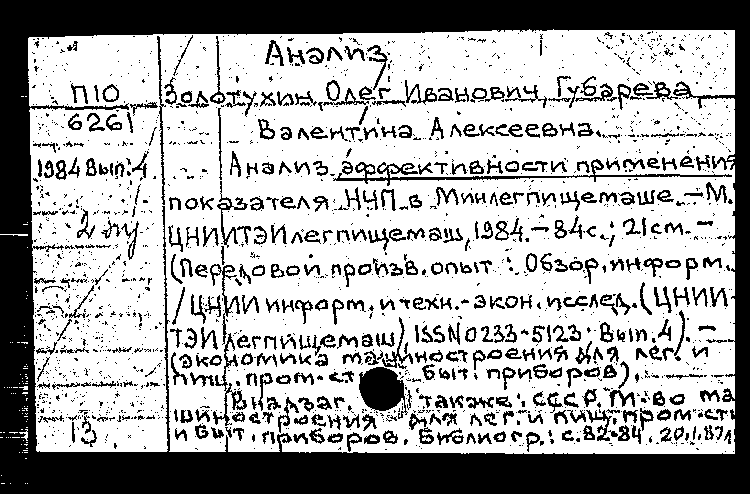 Анализ
П10 Золотухин, Олег Иванович, Губарева,
6261 Валентина Алексеевна.
1984 Вып.4 Анализ эффективности применения
показателя НЧП в Минлегпищемаше. – М.
ЦНИИТЭИлегпищемаш, 1984. – 84с.; 21см. –
(Передовой произв. опыт: Обзор. информ.
/ ЦНИИ информ. и техн.-экон. исслед. (ЦНИИ-
ТЭИлегпищемаш), ISSN 0233-5123; Вып. 4). –
(экономика машиностроения для лег. и
пищ. пром-сти быт. приборов).
В надзаг. также: СССР, М-во ма
шиностроения для лег. и пищ. пром-сти
13 и быт. приборов. Библиогр.: с.82-84. 20.1.87